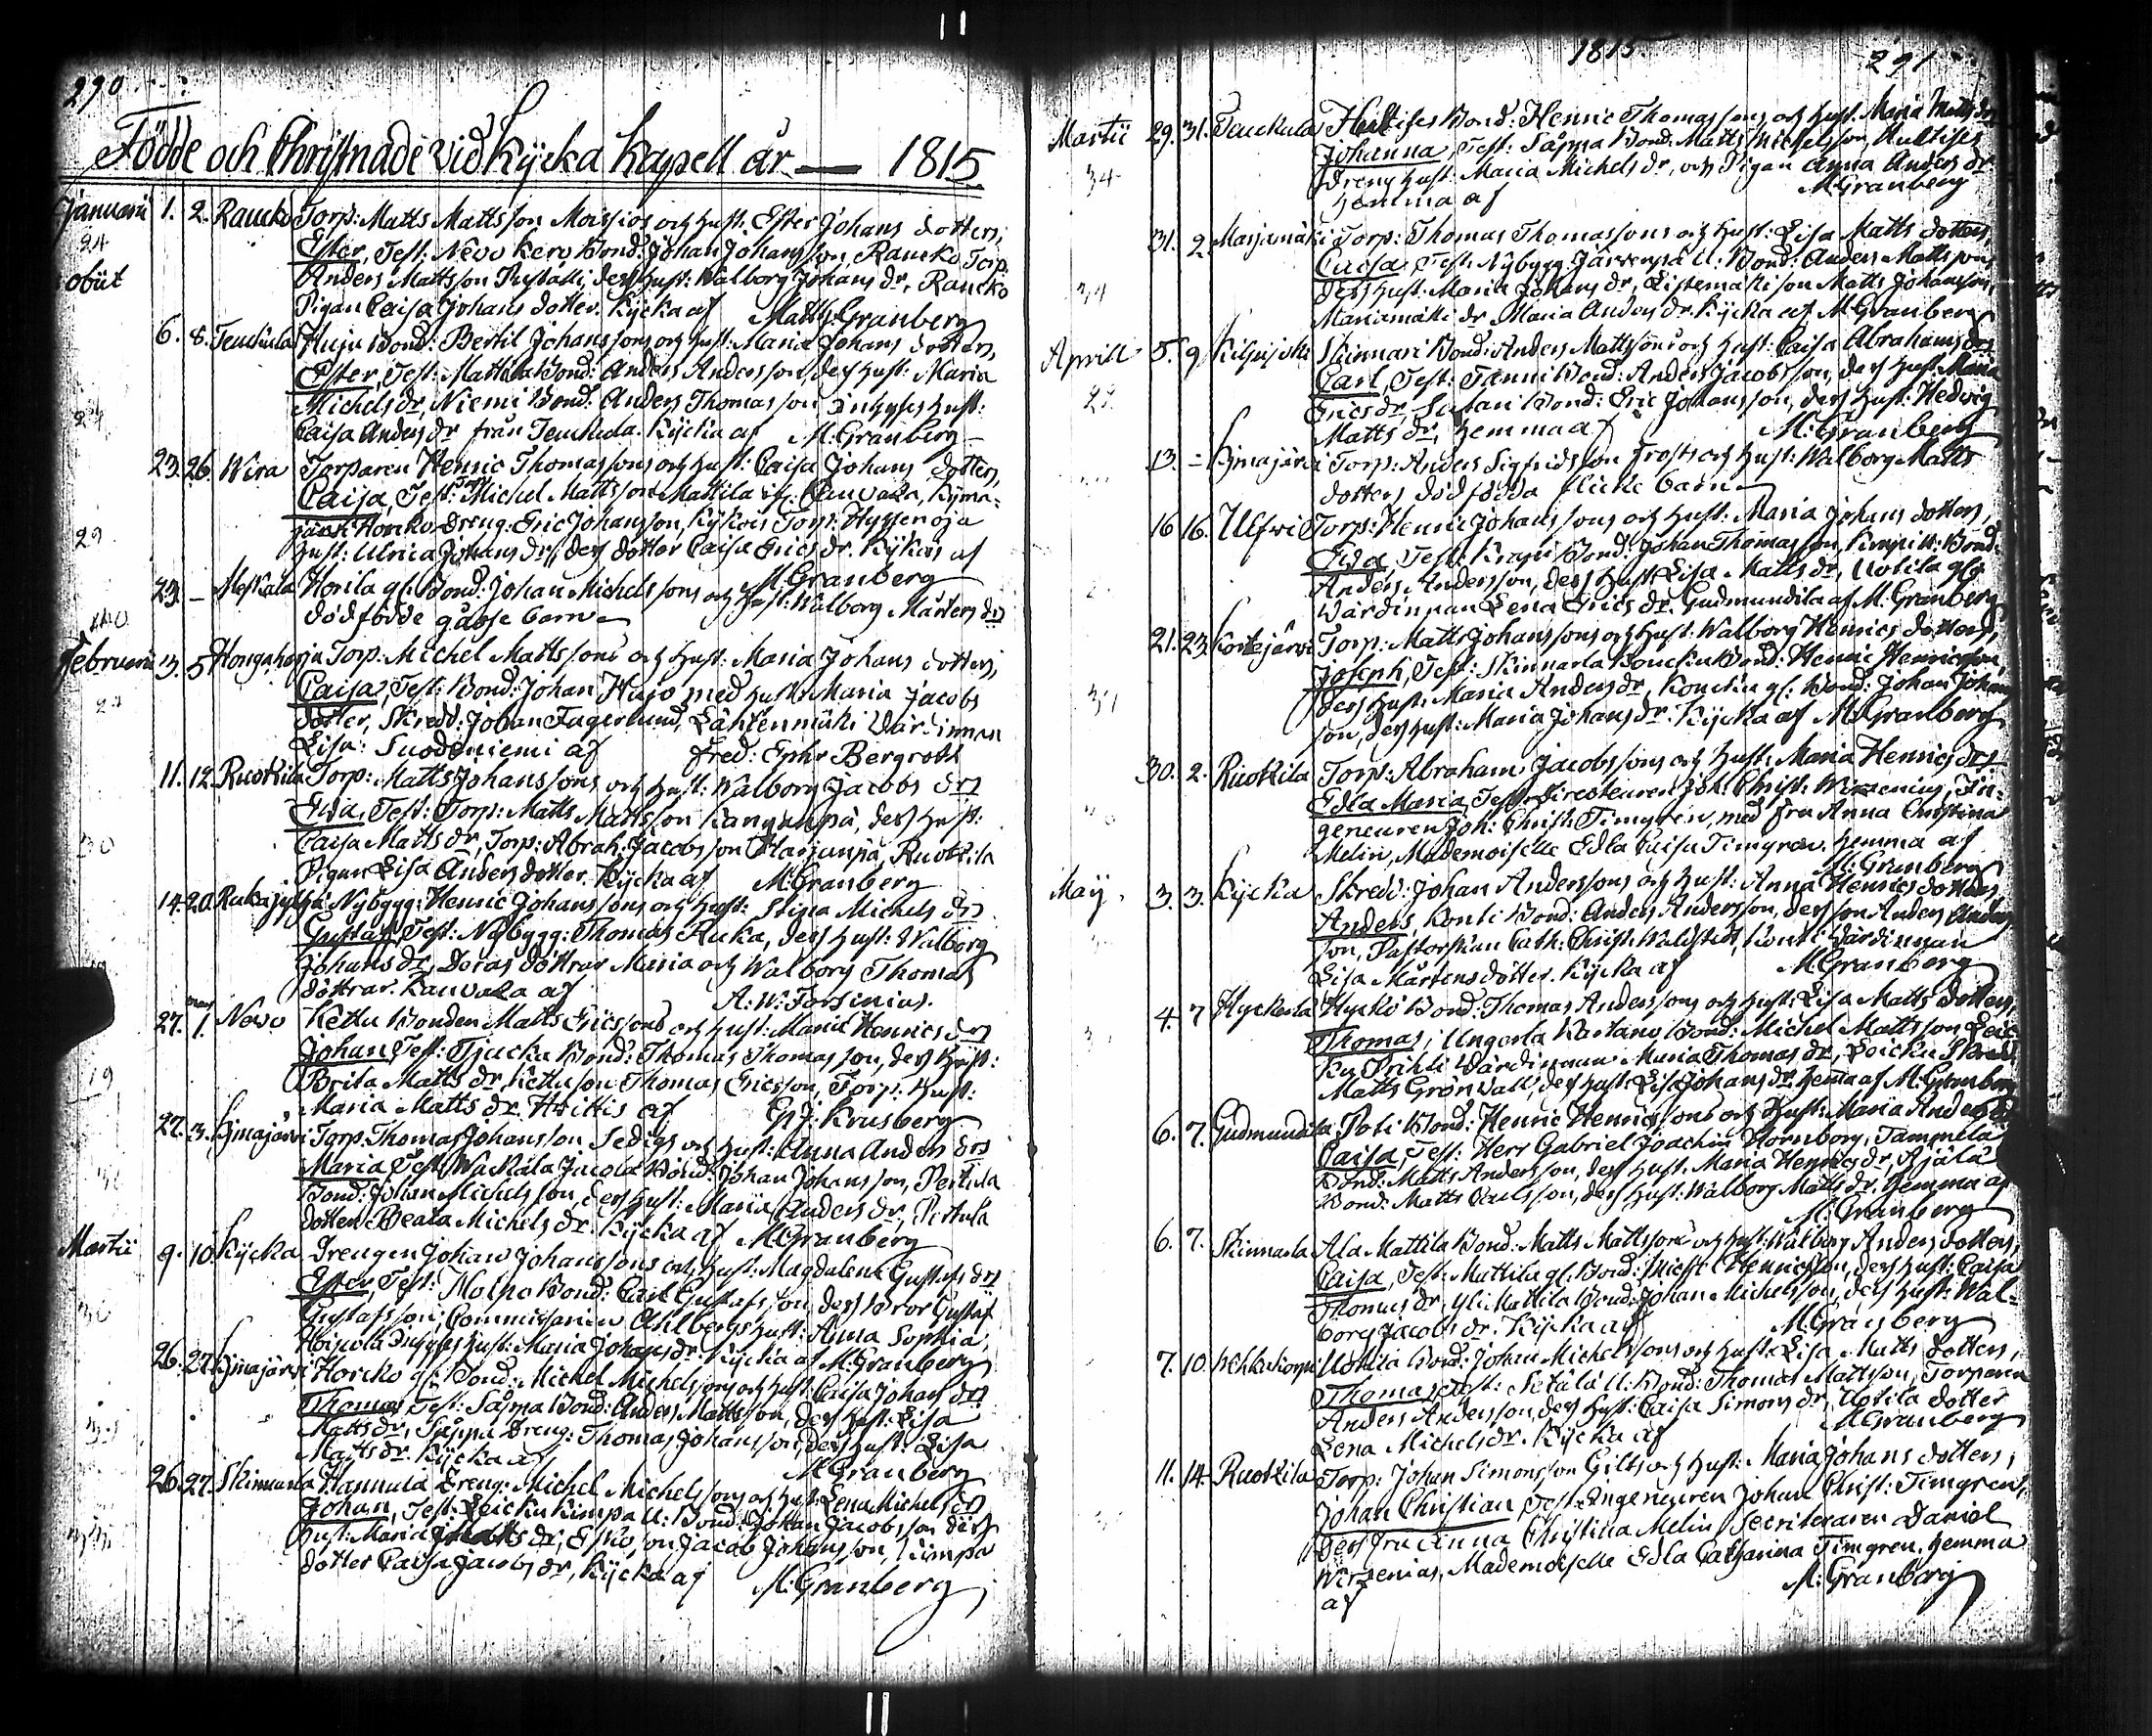 290
Födde och Christnade vid Kycka Kapell år — 1815.
Januarii 1. 2. Raucko Torp: Matts Mattsson Moisios och hust: Ester Johans dotters,
24 Ester, Test: Nevo Kero Bond: Johan Johansson, Raucko Torp:
obiit Anders Mattsson dess hust: Walborg Johans dr, Raucko
Pigan Caisa Johans dotter. Kycka af Matts: Granberg
6. 8. Teuckula Huju Bond: Bertil Johanssons och hust: Maria Johans dotters,
Ester, Test: Mattila Bond: Anders Andersson, dess hust: Maria
24 Michels dr, Niemi Bond: Anders Thomasson Inhyses hust:
Caisa Anders dr från Teuckula. Kycka af M: Granberg
23. 26. Wira Torparen Henric Thomassons och hust: Caisa Johans dotters,
Caisa, Test: Michel Mattsson Mattila if: Kyma-
29 järvi Honko Dreng: Eric Johansson, Torp: Hyssenoja
hust: Ulrica Johans dr, dess dotter Caisa Erics dr. af
M: Granberg
23. – Meskala Horila gl: Bond: Johan Michelssons och hust: Walborg Mårtens drs
dödfödde gåsse barn
Februarii 3. 5 Hongaharju Torp: Michel Mattssons och hust: Maria Johans dotters,
Caisa, Test: Bond: Johan Hujo med hust: Maria Jacobs
dotter, Skredd: Johan Fagerlund, Lähtenmäki Wärdinnan
Lisa: Suodeniemi af Fred: Ephr Bergroth
11. 12. Ruokila Torp: Matts Johanssons och hust: Walborg Jacobs drs
Eva, Test: Torp: Matts Mattsson Kangunpä, dess hust:
Caisa Matts dr, Torp: Abrah: Jacobsson Harjunpä, Ruokila
30 Pigan Lisa Anders dotter. Kycka af M: Granberg
14. 20. Nybygg: Henric Johanssons och hust: Stina Michels drs
Gustaf, Test: Nybygg: Thomas Ruka, dess hust: Walborg
Johans dr, deras döttrar Maria och Walborg Thomas
döttrar. Kauvala af A: W: Forsenius.
27. 1. Nevo Kettu Bonden Matts Ericssons och hust: Maria Henrics drs
Johan, Test: Tjucka Bond: Thomas Thomasson, dess hust:
19 Brita Matts dr, Kettu son Thomas Ericsson, Torp: hust:
Maria Matts dr. Hvittis af G: J: Krusberg
27. 3. Kymajärvi Torp: Thomas Johansson Sedigs och hust: Anna Anders drs
Maria Test: Wackala Jucola Bond: Johan Johansson, Pertula
Bond: Johan Michelsson, dess hust: Maria Anders dr, Pertula
dotter Beata Michels dr. Kycka af M: Granberg
Martii 9. 10. Kycka Drengen Johan Johanssons och hust: Magdalena Gustafs drs
Ester, Test: Molpo Bond: Carl Gustafsson, dess bror Gustaf
30 Gustafsson, Commissarien Ahlbergs hust: Anna Sophia,
Inhyses hust: Maria Johans dr. Kycka af M: Granberg
26. 27. Kymajärvi Honko gl: Bond: Michel Michelssons och hust: Caisa Johans drs
Thomas Test: Såpma Bond: Anders Mattsson, dess hust: Lisa
Matts dr, Såpma Dreng: Thomas Johansson, dess hust: Lisa
Matts dr. Kycka af M: Granberg
26. 27. Skinnarla Hannula Dreng: Michel Michelssons och hust: Lena Michels drs
Johan, Test: Leicku Kimpa U: Bond: Johan Jacobsson dess
hust: Maria Jacobs dr, Esko, son Jacob Johansson, Kimpa
dotter Caisa Jacobs dr, Kycka af M: Granberg
1815. 291
Martii 29. 31. Teuckula Bond: Henric Thomassons och hust: Maria Matts drs
34 Johanna, Test: Såpma Bond: Matts Michelsson,
Dreng hust: Maria Michels dr, och Pigan Anna Anders dr.
hemma af M: Granberg
31. 2. Marjamäki Torp: Thomas Thomassons och hust: Lisa Matts dotters,
Caisa, Test: Nybygg: Järvenpä U: Bond: Anders Mattsson,
34 dess hust: Maria Johans dr, Listemäki son Matts Johansson,
Mariamäki dr Maria Anders dr. Kycka af M: Granberg
Aprill 5. 9. Skinnari Bond: Anders Mattssons och hust: Caisa Abrahams drs
Carl, Test: Tanni Bond: Anders Jacobsson, dess hust: Maria
Erics dr, Sutari Bond: Eric Johansson, dess hust: Hedvig
Matts dr, hemma af M: Granberg
13. – Kymajärvi Torp: Anders Sigfridsson Frosts och hust: Walborg Matts
dotters dödfödda flicke barn
16 16. Ulfvi Torp: Henric Johanssons och hust: Maria Johans dotters,
Eva, Test: Knapi Bond: Johan Thomasson, U: Bond:
Anders Andersson, dess hust: Lisa Matts dr, Uotila gl:
Wärdinnan Lena Erics dr. Gudmundila af M: Granberg
21. 23 Kortejärvi Torp: Matts Johanssons och hust: Walborg Henrics dotters,
Joseph, Test: Skinnarla Bond: Henric Henricsson,
31 dess hust: Maria Anders dr, gl: Bond: Johan Johans
son, dess hust: Maria Johans dr. Kycka af M: Granberg
30. 2. Ruokila Torp: Abraham Jacobssons och hust: Maria Henrics drs
Edla Maria, Test: Directeuren Joh: Christ: In-
geneuren Joh: Christ: Timgren, med fru Anna Christina
Melin, Mademoiselle Edla Caisa Timgren. hemma af
M: Granberg
May 3. 3. Kycka Skredd: Johan Anderssons och hust: Anna Henrics dotters,
Anders, Konti Bond: Anders Andersson, dess son Anders Anders
son, Pastorskan Cath: Christ: Waldstedt, Konti Wärdinnan
Lisa Mårtens dotter. Kycka af M: Granberg
4. 7 Hyckerla Hycki Bond: Thomas Anderssons och hust: Lisa Matts dotters,
Thomas, Ungerla Bond: Michel Mattsson Leic
ku Prihti Wärdinnan Maria Thomas dr, Leicku Skredd:
Matts Grönvall, dess hust: Lisa Johans dr. hemma af M: Granberg
6. 7. Gudmundila Poti Bond: Henric Henricssons och hust: Maria Anders drs
Caisa, Test: Herr Gabriel Joachim Hornborg, Tammela
Bond: Matts Andersson, dess hust: Maria Henrics dr, Ajälä
Bond: Matts Carlsson, dess hust: Walborg Matts dr. hemma af
M: Granberg
6. 7. Skinnarla Ala Mattila Bond: Matts Mattssons och hust: Walborg Anders dotters,
Caisa, Test: Mattila gl: Bond: Michel Henricsson, dess hust: Caisa
Thomas dr, Yli Mattila Bond: Johan Michelsson, dess hust: Wal-
borg Jacobs dr. Kycka af M: Granberg
7. 10. Uotila Bond: Johan Michelssons och hust: Lisa Matts dotters,
Thomas, Test: Setälä U: Bond: Thomas Mattsson, Torparen
Anders Andersson, dess hust: Caisa Simons dr, Uotila dotter
Lena Michels dr. Kycka af M: Granberg
11. 14. Ruokila Torp: Johan Simonsson Gilts och hust: Maria Johans dotters,
Johan Christian, Test: Ingeneuren Johan Christ: Timgren,
dess fru Anna Christina Melin, Secreteraren Daniel
Wirzenius, Mademoiselle Edla Catharina Timgren. hemma
af M: Granberg